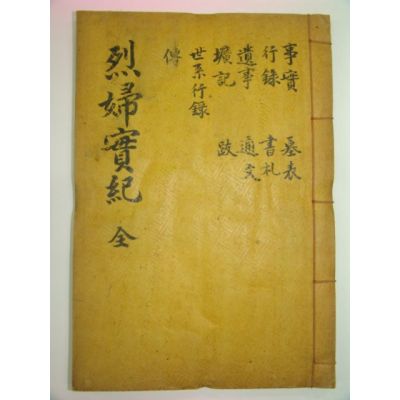 事實 墓表
行錄 書札
遺事 通文
壙記 跋
世系行錄
傳
烈婦實紀 全